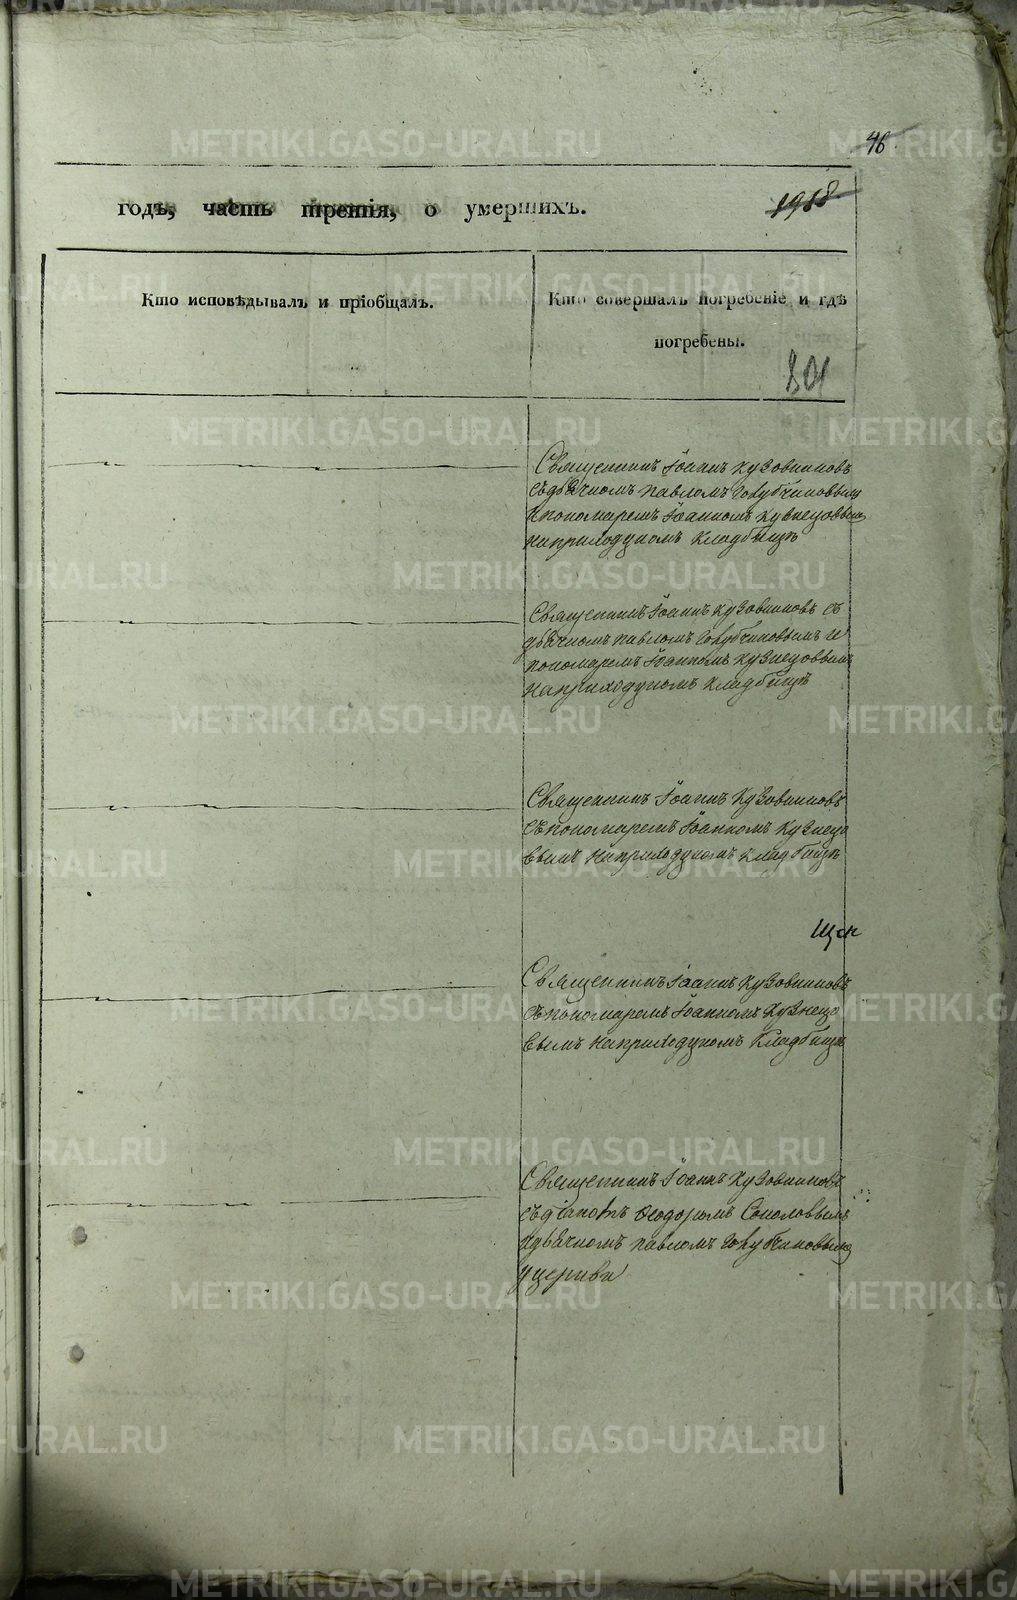 46
годъ, часть третія, о умершихъ.
1918
Кто исповѣдывалъ и пріобщалъ.
Кто совершалъ погребеніе и гдѣ
погребены.
801
Священникъ Іоаннъ Кузовниковъ
съ дьячкомъ Павломъ Голубчиковымъ
и пономаремъ Іоанномъ Кузнецовымъ
на приходскомъ кладбищѣ
Священникъ Іоаннъ Кузовниковъ съ
дьячкомъ Павломъ Голубчиковымъ и
пономаремъ Іоанномъ Кузнецовымъ
на приходскомъ кладбищѣ
Священникъ Іоаннъ Кузовниковъ
съ пономаремъ Іоанномъ Кузнецо
вымъ на приходскомъ кладбищѣ
Священникъ Іоаннъ Кузовниковъ
съ пономаремъ Іоанномъ Кузнецо
вымъ на приходскомъ кладбищѣ
Священникъ Іоаннъ Кузовниковъ
съ діакономъ Ѳеодоромъ Соколовымъ
и дьячкомъ Павломъ Голубчиковымъ
у церкви
METRIKI.GASO-URAL.RU